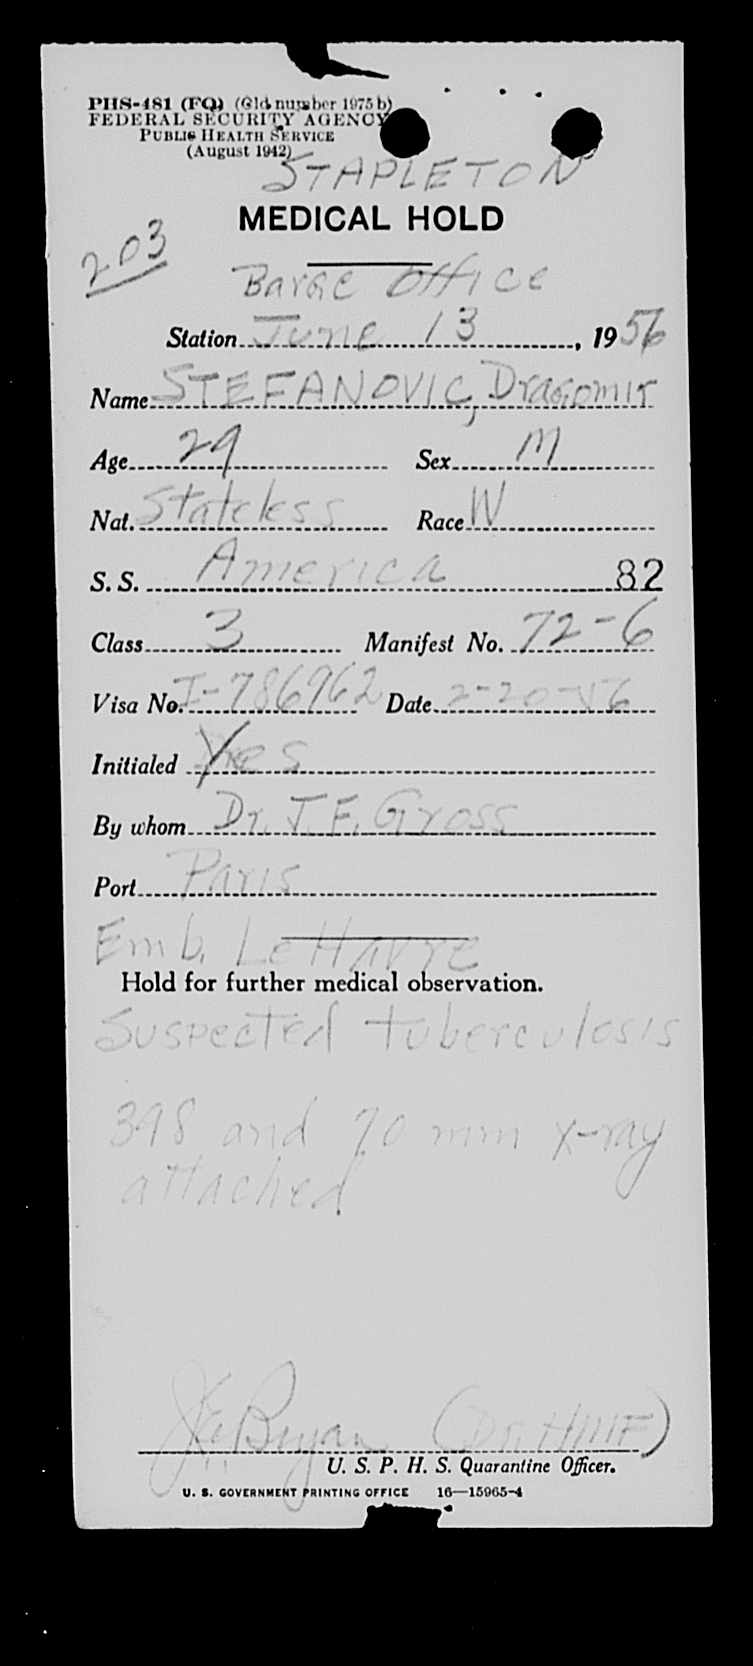 PHS-481 (FQ) (Old number 1975 b)
FEDERAL SECURITY AGENCY
PUBLIC HEALTH SERVICE
(August 1942)
STAPLETON
MEDICAL HOLD
203
Barge Office
Station June 13, 1956
Name STEFANOVIC, Dragomir
Age 29 Sex M
Nat. Stateless Race W
S. S. America 82
Class 3 Manifest No. 72-6
Visa No. I-786962 Date 2-20-56
Initialed Yes
By whom Dr. J. F. Gross
Port Paris
Emb. Le Havre
Hold for further medical observation.
Suspected tuberculosis
398 and 70 mm x-ray
attached
Bryan (Dr.
U. S. P. H. S. Quarantine Officer.
U. S. GOVERNMENT PRINTING OFFICE 16—15965-4